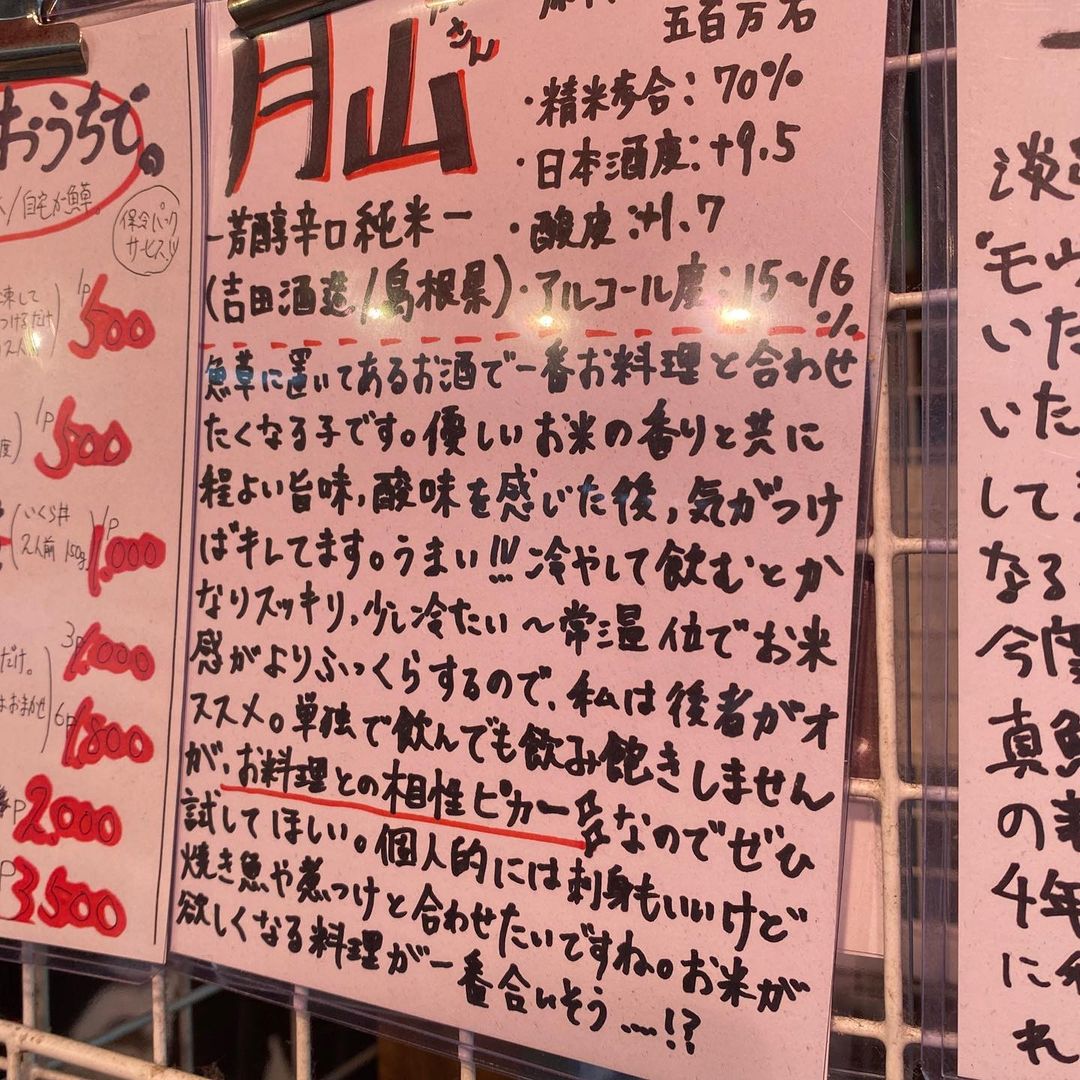 おうちで。
自宅が魚草
保冷パック
サービス
1P 500
つけるだけ
1P 500
いくら丼
2人前 150g
1P 1,000
3P 1,000
だけ。
はおまかせ
6P 1,800
P 2,000
P 3,500
月山
さん
五百万石
・精米歩合：70%
・日本酒度：+9.5
ー芳醇辛口純米ー
・酸度：+1.7
(吉田酒造/島根県)
・アルコール度：15〜16%
魚草に置いてあるお酒で一番お料理と合わせ
たくなる子です。優しいお米の香りと共に
程よい旨味，酸味を感じた後，気がつけ
ばキレてます。うまい!!! 冷やして飲むとか
なりスッキリ，少し冷たい〜常温位でお米
感がよりふっくらするので、私は後者がオ
ススメ。単独で飲んでも飲み飽きしません
が、お料理との相性ピカ一なのでぜひ
試してほしい。個人的には刺身もいいけど
焼き魚や煮つけと合わせたいですね。お米が
欲しくなる料理が一番合いそう……!?
淡
いた
いた
して
なる
今度
真
の
4年
に
れ